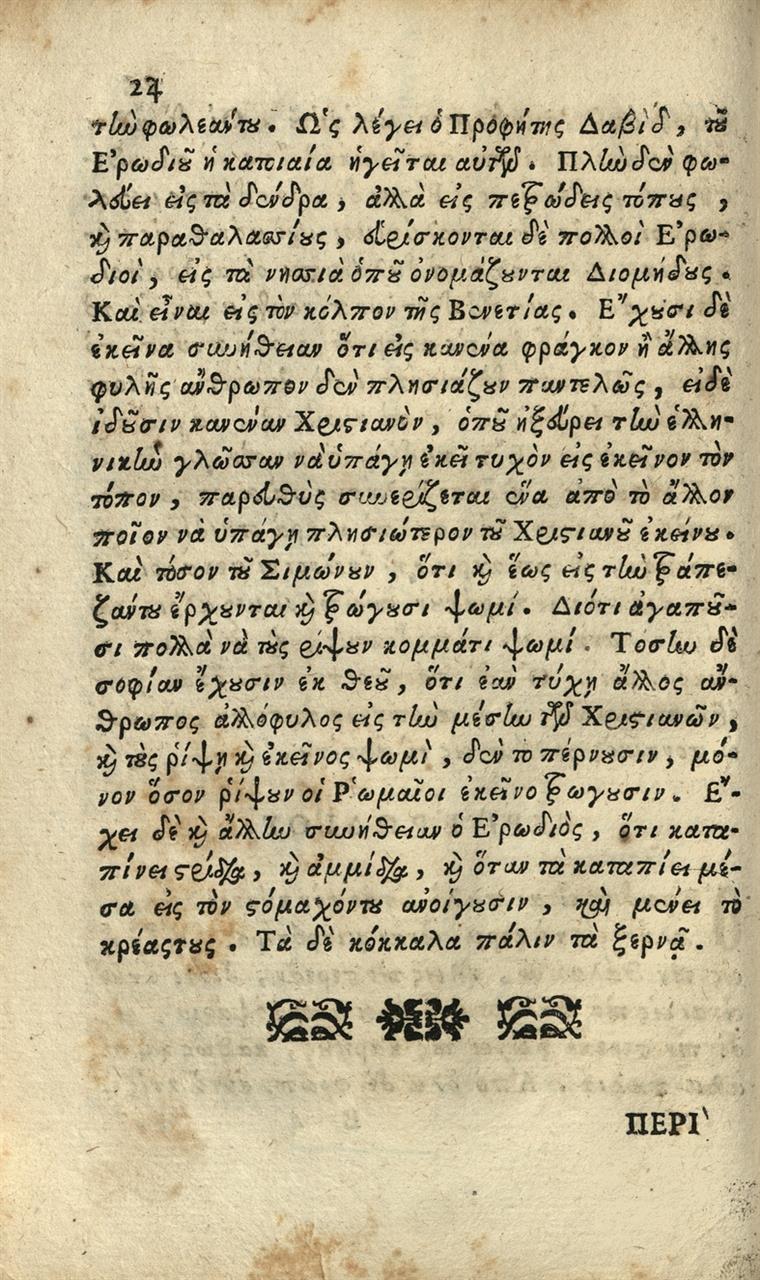 24
τὴν φωλεάντου. Ὡς λέγει ὁ Προφήτης Δαβὶδ, τοῦ
Ἐρωδιοῦ ἡ κατοιαία ἡγεῖται αὐτῶν. Πλὴν δὲν φω-
λεύει εἰς τὰ δένδρα, ἀλλὰ εἰς πετρώδεις τόπους,
καὶ παραθαλασσίους, εὑρίσκονται δὲ πολλοὶ Ἐρω-
διοὶ, εἰς τὰ νησσιὰ ὁποῦ ὀνομάζουνται Διομήδους.
Καὶ εἶναι εἰς τὸν κόλπον τῆς Βενετίας. Ἔχουσι δὲ
ἐκεῖνα συνήθειαν ὅτι εἰς κανένα φράγκον ἢ ἄλλης
φυλῆς ἄνθρωπον δὲν πλησιάζουν παντελῶς, εἰδὲ
ἰδοῦσιν κανέναν Χριστιανὸν, ὁποῦ ἠξεύρει τὴν ἑλλη-
νικὴν γλῶσσαν νὰ ὑπάγῃ ἐκεῖ τυχὸν εἰς ἐκεῖνον τὸν
τόπον, παρευθὺς συνερίζεται ἕνα ἀπὸ τὸ ἄλλον
ποῖον νὰ ὑπάγῃ πλησιώτερον τοῦ Χριστιανοῦ ἐκείνου.
Καὶ τόσον τοῦ Σιμώνουν, ὅτι καὶ ἕως εἰς τὴν τράπε-
ζάντου ἔρχουνται καὶ τρώγουσι ψωμί. Διότι ἀγαποῦ-
σι πολλὰ νὰ τοὺς ρίψουν κομμάτι ψωμί. Τοσὴν δὲ
σοφίαν ἔχουσιν ἐκ θεοῦ, ὅτι ἐὰν τύχῃ ἄλλος ἄν-
θρωπος ἀλλόφυλος εἰς τὴν μέσην τῶν Χριστιανῶν,
καὶ τοὺς ῥίψῃ καὶ ἐκεῖνος ψωμὶ, δὲν το πέρνουσιν, μό-
νον ὅσον ῥίψουν οἱ Ῥωμαῖοι ἐκεῖνο τρωγουσιν. Ἔ-
χει δὲ καὶ ἄλλην συνήθειαν ὁ Ἐρωδιὸς, ὅτι κατα-
πίνει στρίδια, καὶ ἀμμίδια, καὶ ὅταν τὰ καταπίει μέ-
σα εἰς τὸν στόμαχόντου ἀνοίγουσιν, καὶ μένει τὸ
κρέαςτους. Τὰ δὲ κόκκαλα πάλιν τὰ ξερνᾷ.
ΠΕΡῚ